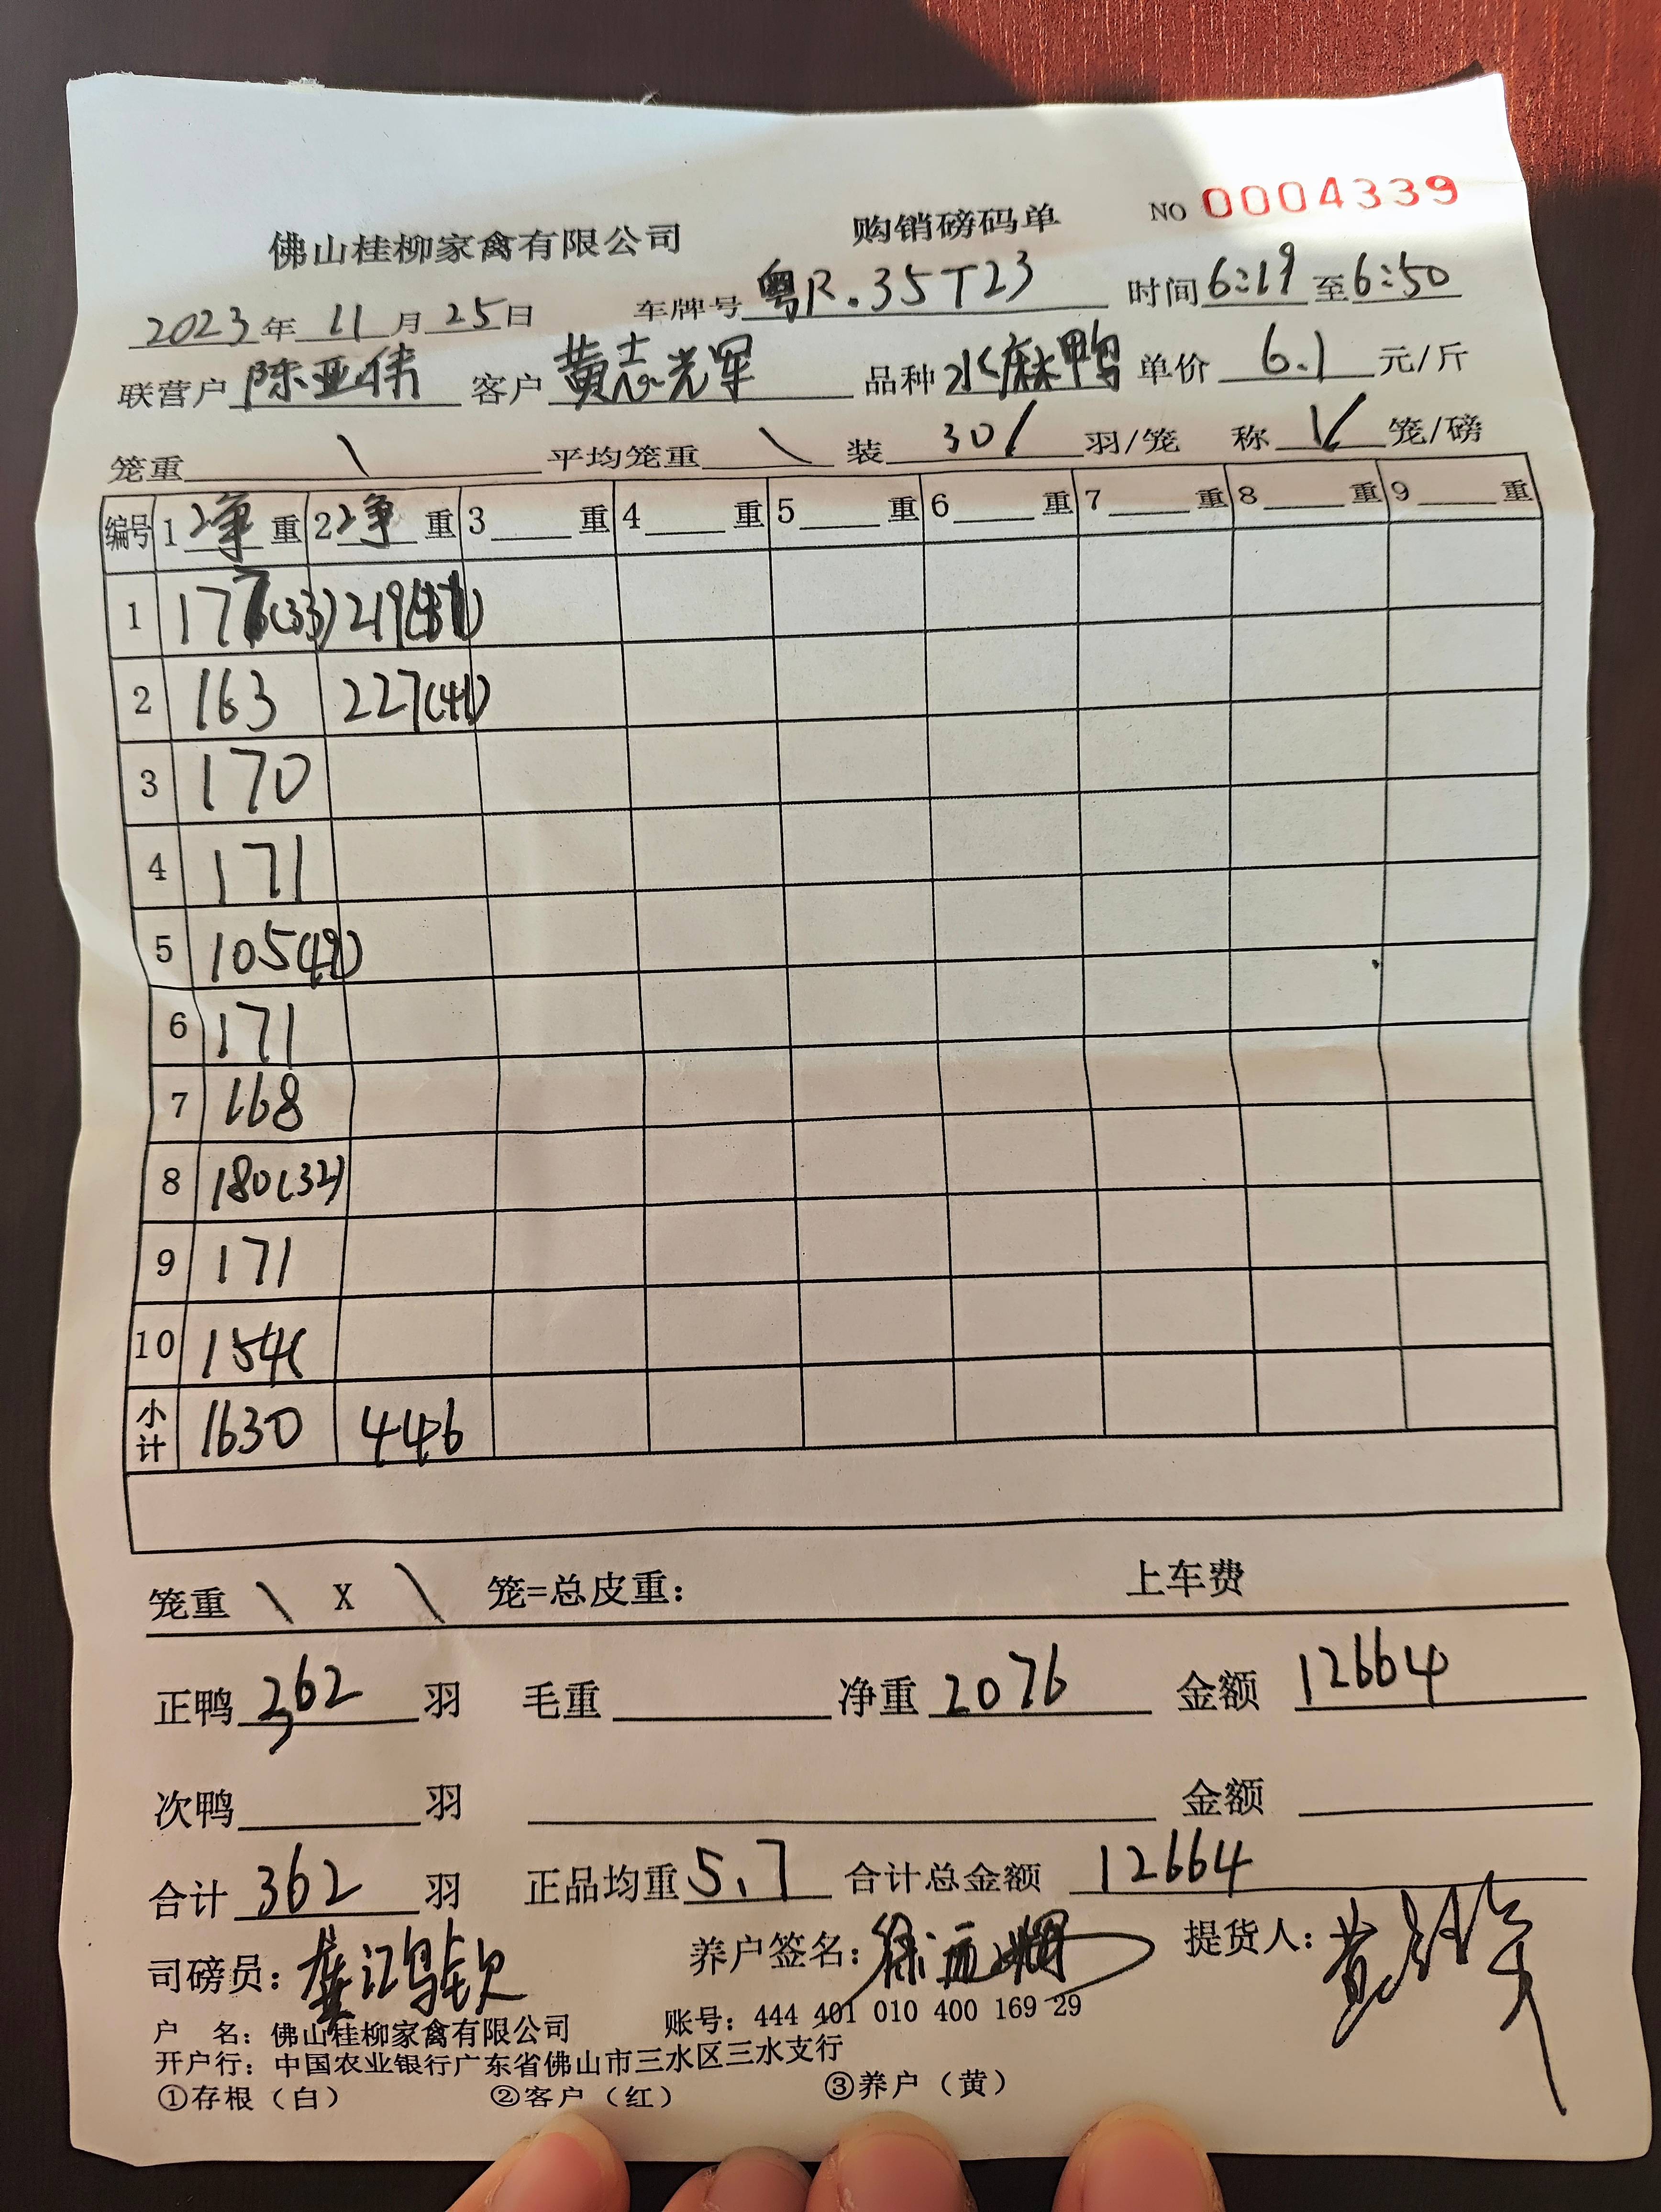 佛山桂柳家禽有限公司 购销磅码单 NO 0004339
2023年 11 月 25 日 车牌号 粤R.35T23 时间 6:19 至 6:50
联营户 陈亚伟 客户 黄志光军 品种 水麻鸭 单价 6.1 元/斤
笼重 \ 平均笼重 \ 装 30/ 羽/笼 称 1/ 笼/磅
编号 1 净 重 2 净 重 3 重 4 重 5 重 6 重 7 重 8 重 9 重
1 177(33) 219
2 163 227(41)
3 170
4 171
5 105
6 171
7 168
8 180(32)
9 171
10 154
小计 1630 446
笼重 \ X \ 笼=总皮重: 上车费
正鸭 362 羽 毛重 净重 2076 金额 12664
次鸭 羽 金额
合计 362 羽 正品均重 5.7 合计总金额 12664
司磅员: 龚江鸿钦 养户签名: 提货人:
户 名: 佛山桂柳家禽有限公司 账号: 444 401 010 400 169 29
开户行: 中国农业银行广东省佛山市三水区三水支行
①存根（白） ②客户（红） ③养户（黄）